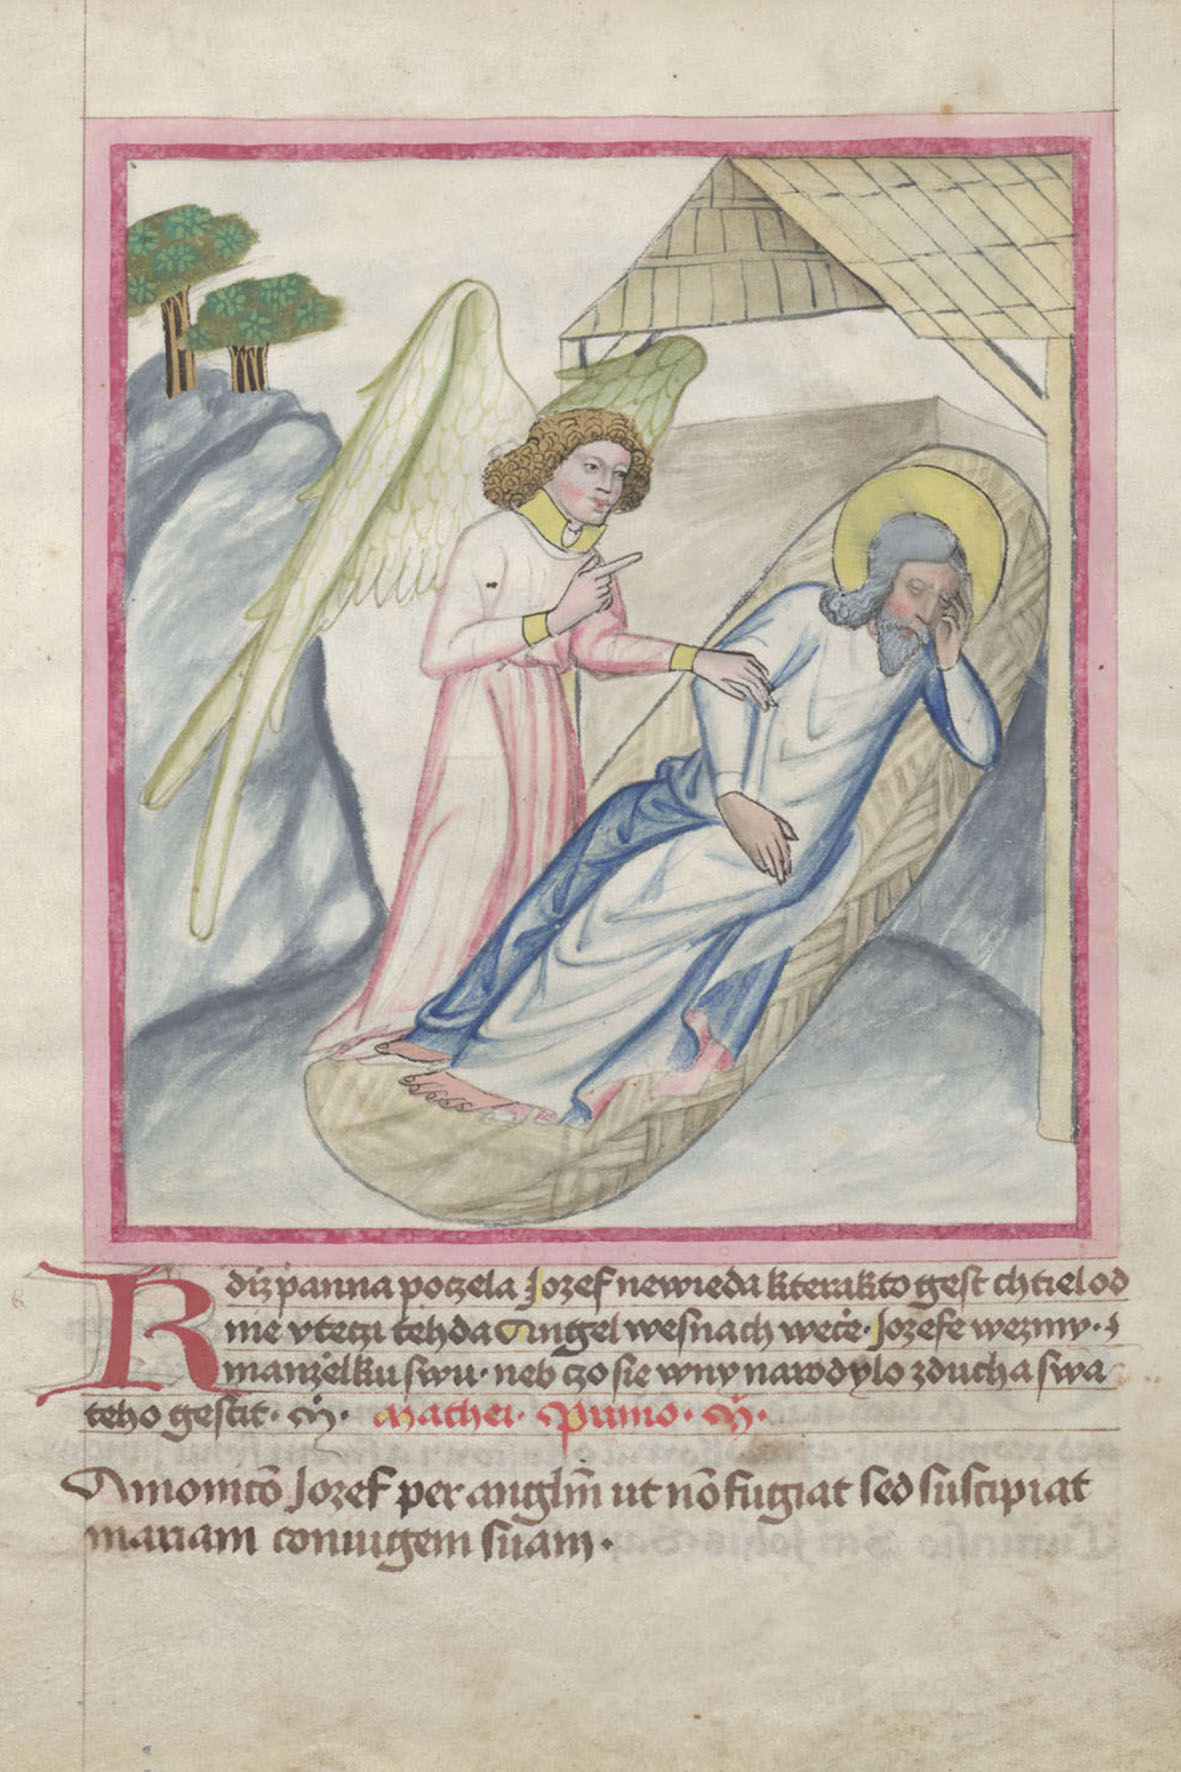 Kdiz panna poczela Jozef newieda kterakto gest chtiel od
nie vteczi tehda Angel wesnach weċe· Jozefe wezmy· 
manżelku swu· neb czo sie wny narodylo zducha swa
teho gestit· Mathei· Primo·
Amonico Jozef per anglm̄ ut nō fugiat sed suscipiat
mariam coniugem suam·